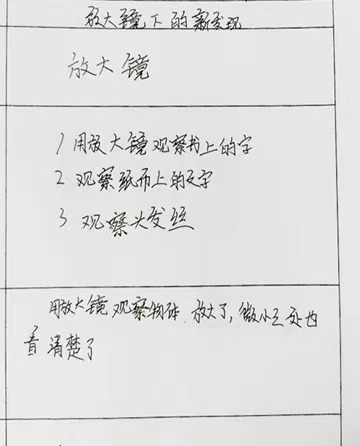 放大镜下的新发现
放大镜
1 用放大镜观察书上的字
2 观察纸币上的文字
3 观察头发丝
用放大镜观察物体 放大了,微小之处也
看清楚了